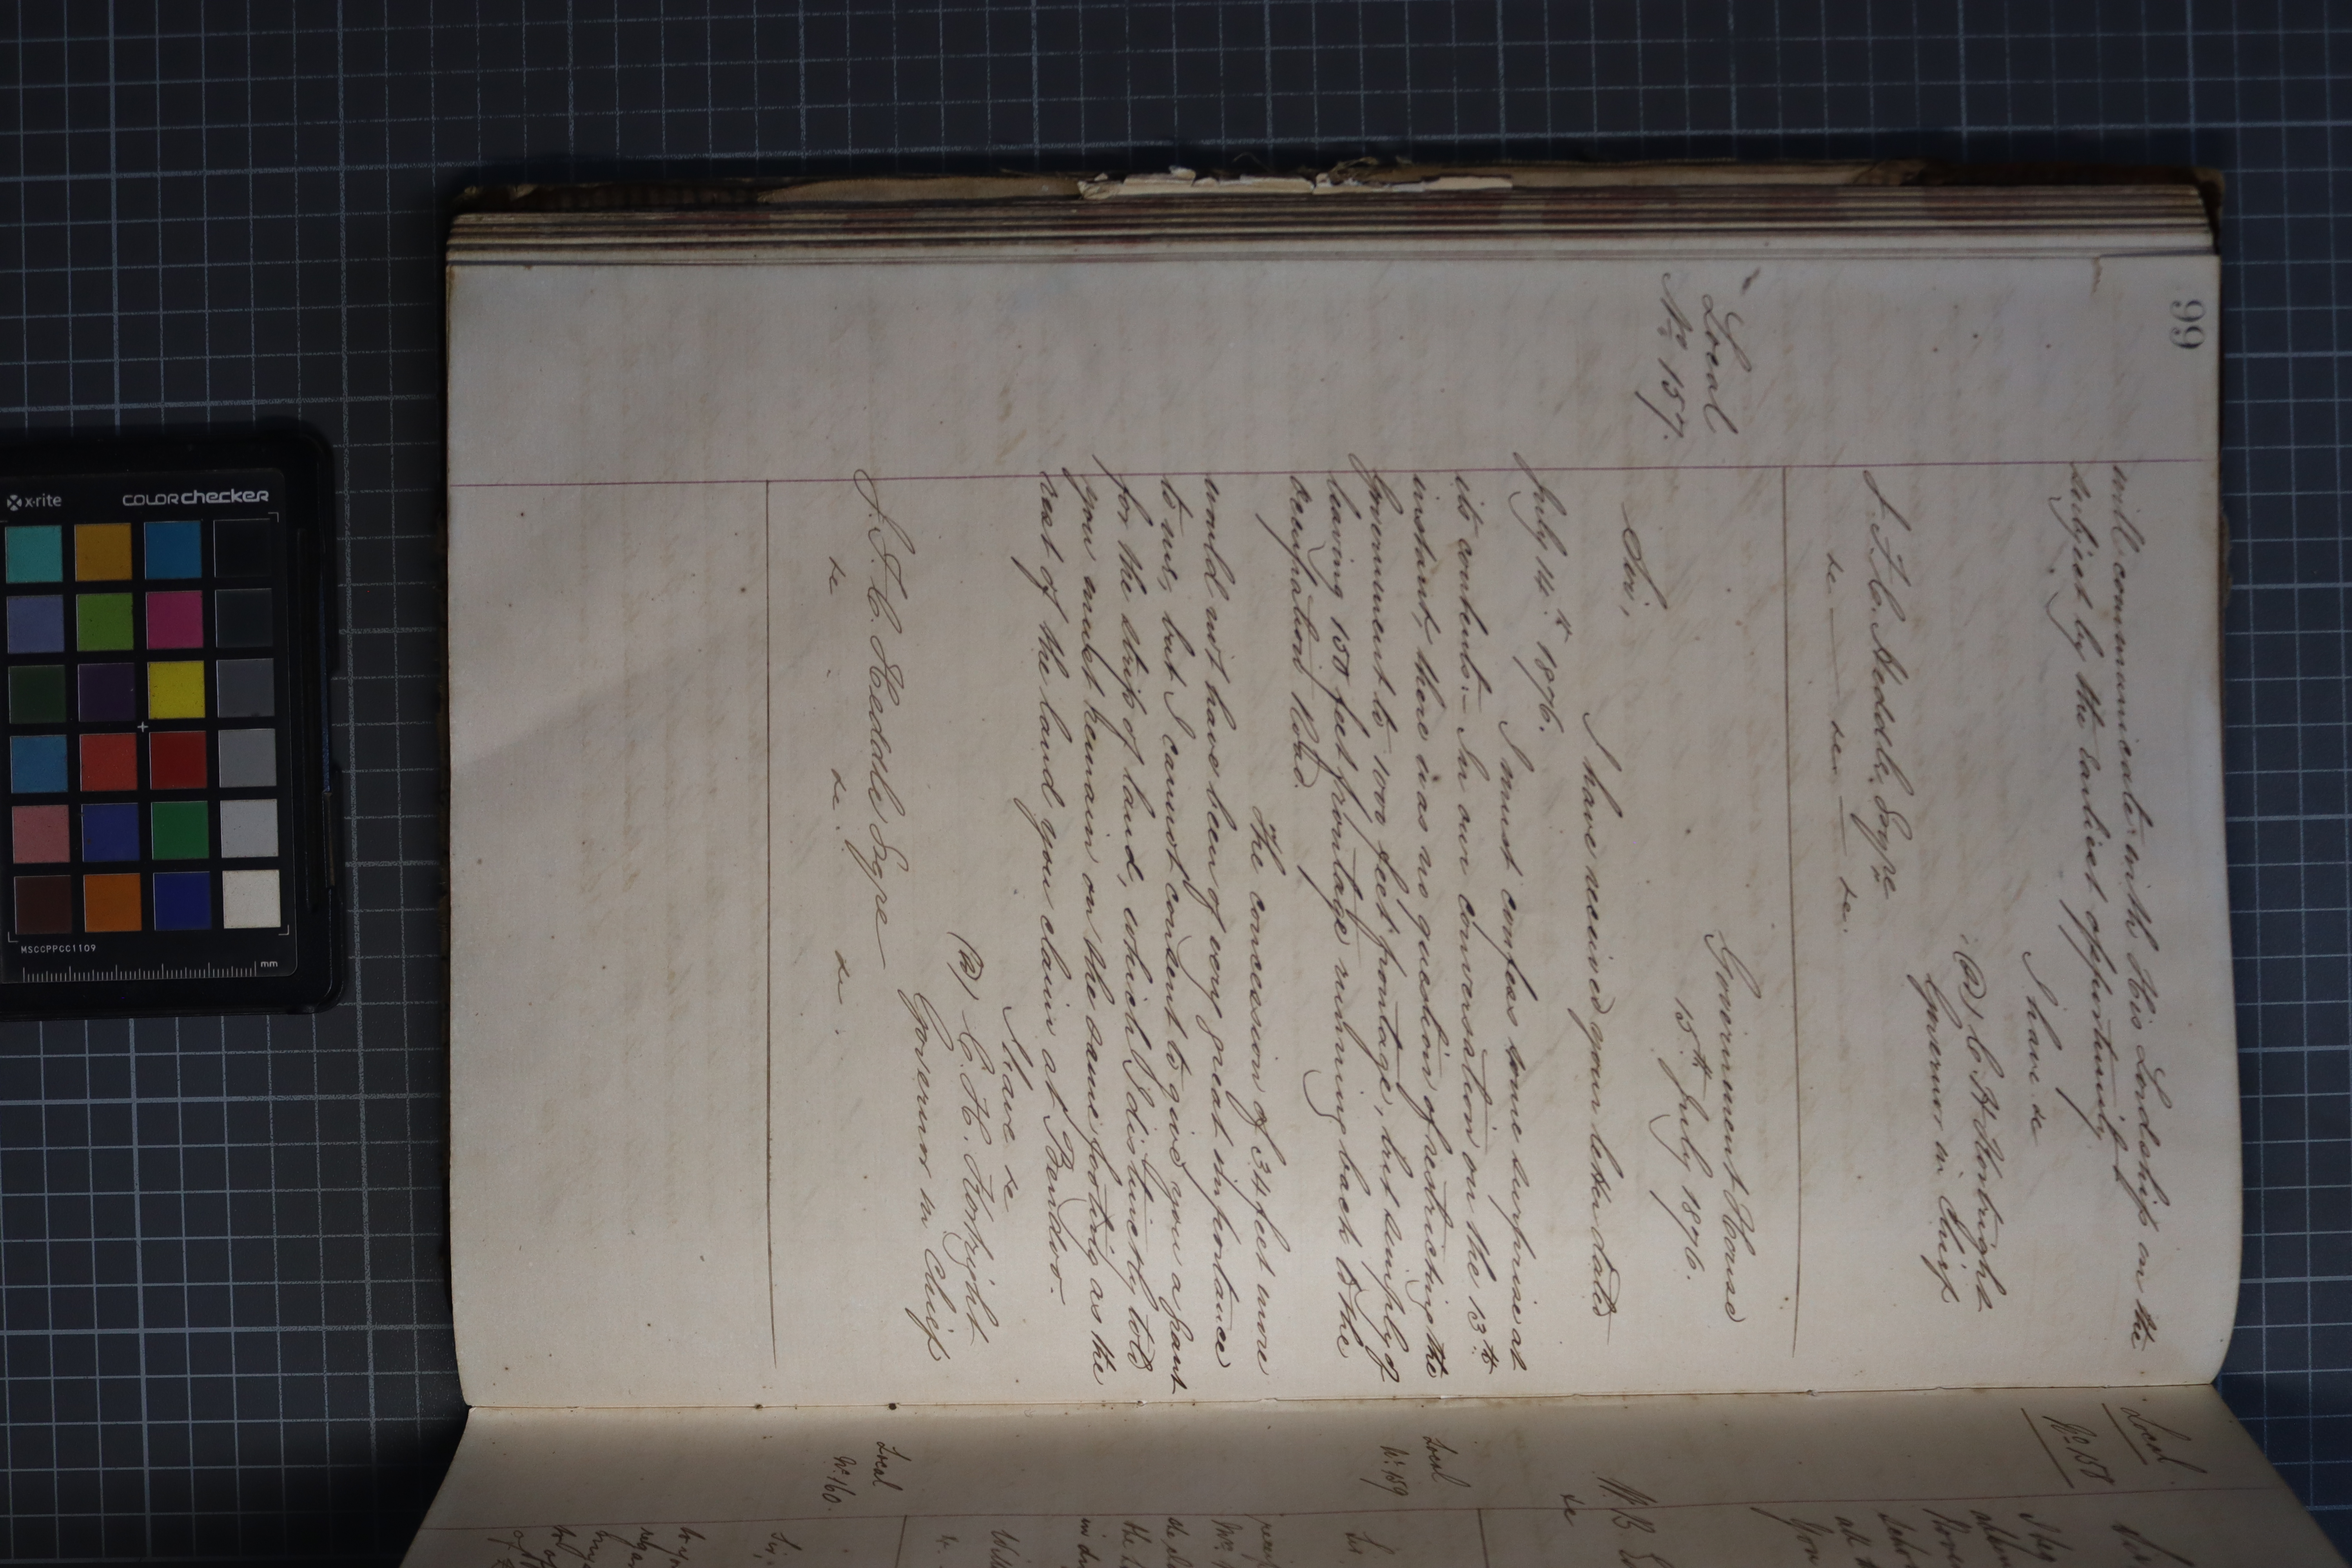 66
will communicate with His Lordship on the
subject by the earliest opportunity
I have &c
C. H. Kortright
Governor in Chief
J. F. C. Heddle, Esqre
&c &c &c.
Local
No. 157.
Government House
15th July 1876.
Sir,
I have received your letter dated
July 14th 1876.
I must confess some surprise at
its contents:- In our conversation on the 13th
instant, there was no question of restricting the
Government to 1000 feet frontage, but simply of
leaving 150 feet frontage running back to the
occupation Road.
The concession of 34 feet more
would not have been of very great importance
to us, but I cannot consent to give you a grant
for the strip of land, which I distinctly told
you must remain on the same footing as the
rest of the land you claim at Bendoo.
I have &c
C. H. Kortright
Governor in Chief
J. F. C. Heddle Esqre
&c. &c. &c.
Local
No. 158
W. B.
&c
Local
No. 159
Local
No. 160.
Sir,